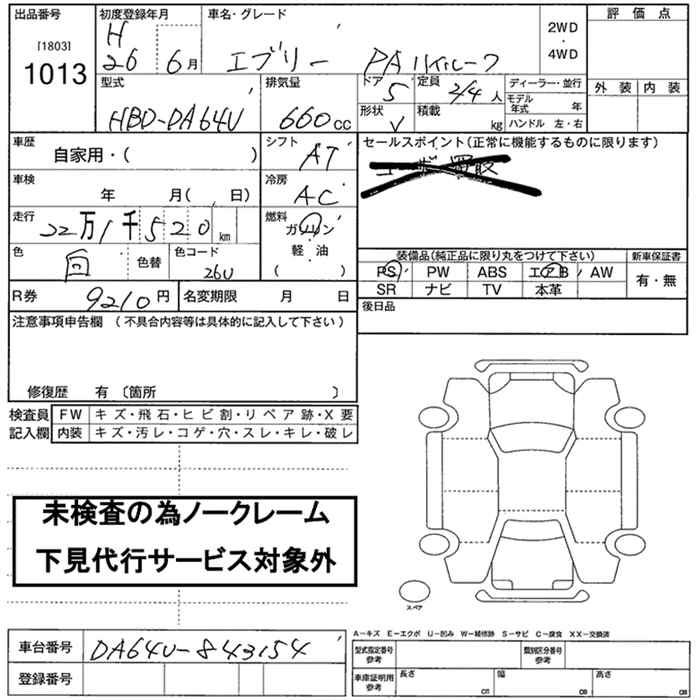 出品番号
[1803]
1013
初度登録年月
H
26 6月
車名・グレード
エブリー PA ハイルーフ
2WD
・
4WD
評価点
外装 内装
型式
HBD-DA64V
排気量
660cc
ドア
5
定員
2/4人
形状
V
積載
kg
ディーラー・並行
モデル年式 年
ハンドル 左・右
車歴
自家用・( )
シフト
AT
セールスポイント(正常に機能するものに限ります)
車検
年 月( 日)
冷房
AC
走行
22万1千520km
燃料
ガソリン
軽・油
( )
色
白
色替
色コード
26U
装備品(純正品に限り丸をつけて下さい)
新車保証書
PS PW ABS エアB AW
SR ナビ TV 本革
有・無
R券 9210円
名変期限 月 日
後日品
注意事項申告欄 (不具合内容等は具体的に記入して下さい)
修復歴 有 〔箇所 〕
検査員記入欄
FW キズ・飛石・ヒビ割・リペア跡・X要
内装 キズ・汚レ・コゲ・穴・スレ・キレ・破レ
未検査の為ノークレーム
下見代行サービス対象外
スペア
車台番号 DA64V-843154
登録番号
A-キズ E-エクボ U-凹み W-補修跡 S-サビ C-腐食 XX-交換済
型式指定番号
参考
類別区分番号
参考
車庫証明用
参考
長さ cm
幅 cm
高さ cm